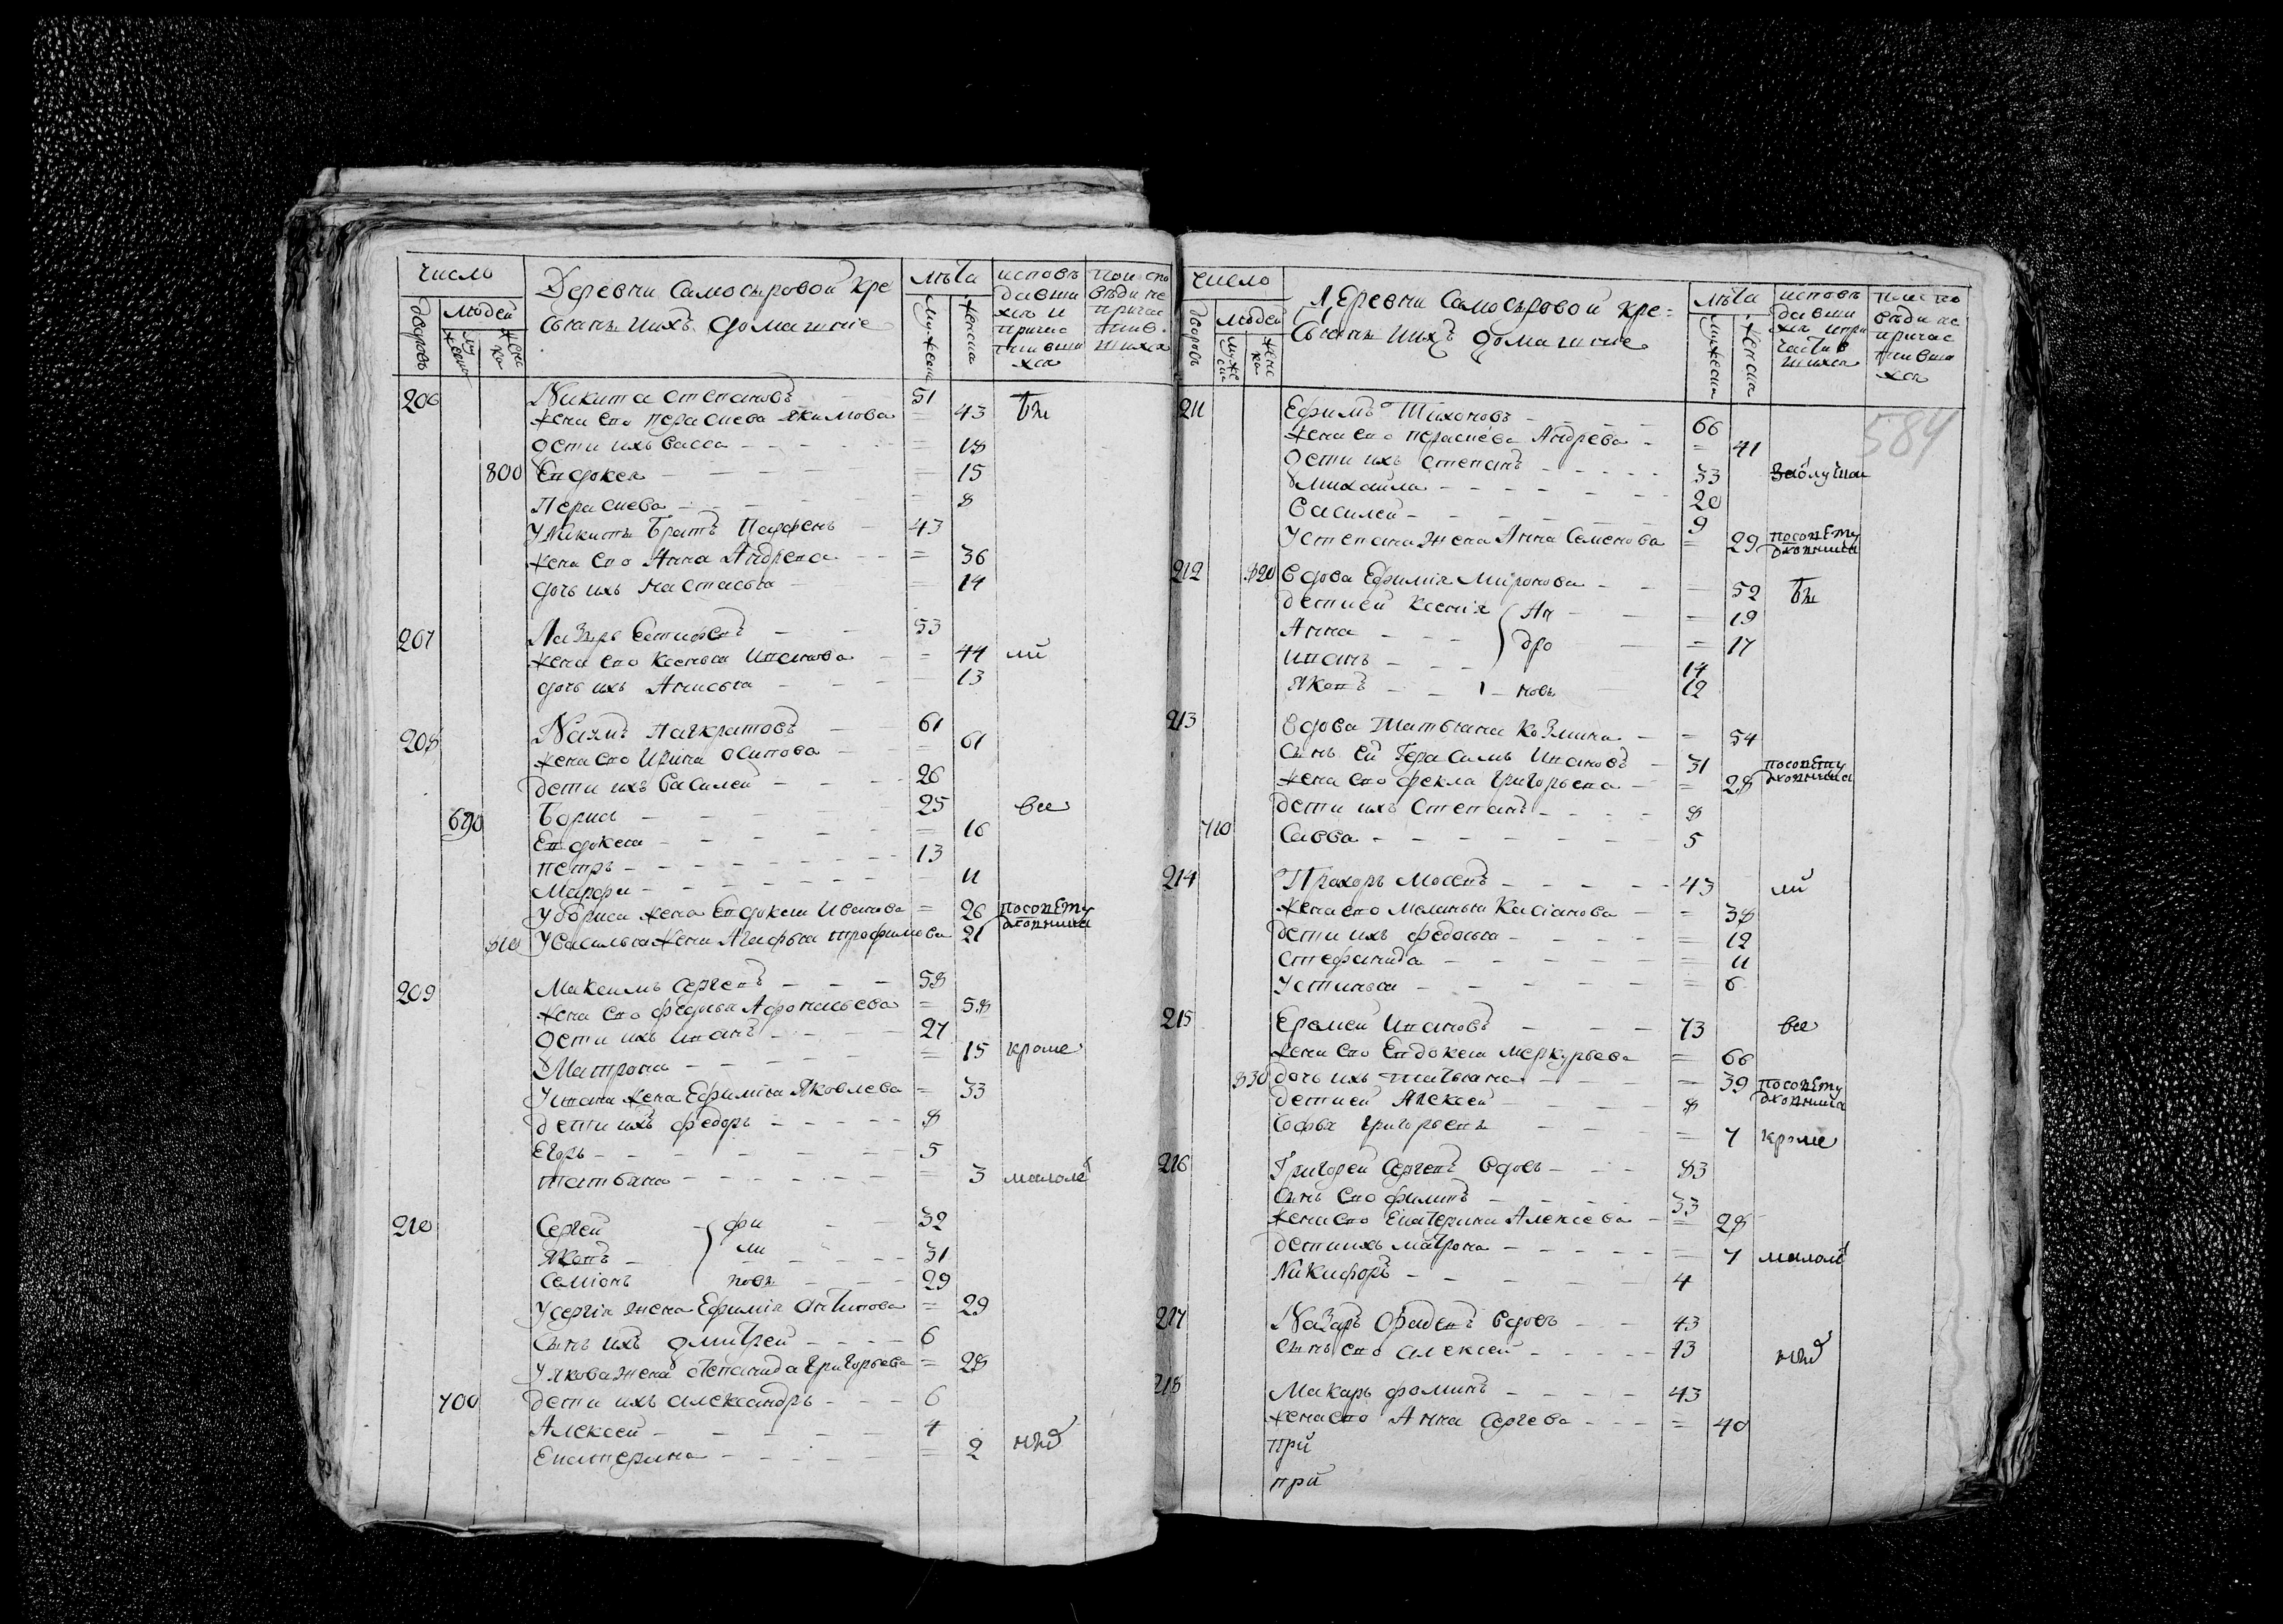 число
Деревни Самосыровой кре
стьяне и ихъ домашние
лѣта
исповѣ
давши
хся и
причас
тивши
хся
при испо
вѣди не
причас
тив
шихся
дворовъ
людей
мужеска
женска
мужеска
женска
206 Никита Степановъ 51
жена его Парасиева Якимова = 43 бы
дети ихъ Васса = 18
800 Евдокея = 15
Парасиева = 8
У Микиты братъ Парфенъ 43
жена его Анна Андрева = 36
дочь ихъ Настасья = 14
207 Лазарь Естифевъ 53
жена его Ксенья Иванова = 44 ли
дочь ихъ Анисья 13
208 Панкратовъ 61
жена его Ирина Осипова = 61
дети ихъ Василей 26
690 Борисъ 25 все
Евдокея = 16
Петръ 13
Марфа 11
У Бориса жена Евдокея Иванова = 26
810 У Василья жена Агафья Трофимова 21
209 Максимъ Сергевъ 58
жена его Федосья Афонасьева = 58
дети ихъ Иванъ 27
Матрона = 15 кроме
У Ивана жена Ефимия Яковлева = 33
дети ихъ Федоръ 8
Егоръ 5
Татьяна = 3 малолѣ
210 Сергей фи 32
Яковъ ли 31
Семионъ повы 29
У Сергия жена Ефимия Антипова = 29
сынъ ихъ Дмитрей 6
У Якова жена Степанида Григорьева = 28
700 дети ихъ Александръ 6
Алексей 4
Екатерина = 2
число
Деревни Самосыровой кре=
стьяне и ихъ домашние
лѣта
исповѣ
давши
хся и при
частив
шихся
при испо
вѣди не
причас
тивши
хся
дворовъ
людей
мужеска
женска
мужеска
женска
584
211 Ефимъ Тихоновъ 66
жена его Парасиева Андрева = 41
дети ихъ Степанъ 33
Михайла 20
Василей 9
У Степана жена Анна Семенова = 29
212 820 вдова Ефимия Миронова 52 бы
дети ей Ксения Ан = 19
Анна дро = 17
Иванъ 14
Яковъ новы 12
213 вдова Татьяна Козмина = 54
сынъ ей Герасимъ Ивановъ 31
жена его Фекла Григорьева = 28
дети ихъ Степанъ 8
710 Савва 5
214 Прохоръ Мосевъ 43 ли
жена его Меланья Касианова = 38
дети ихъ Федосья = 12
Стефанида = 11
Устинья = 6
215 Еремей Ивановъ 73 все
жена его Евдокея Меркурьева = 66
830 дочь ихъ Татьяна 39
дети ей Алексей 8
Софья Григорьевы 7 кроме
216 Григорей Сергевъ вдовъ 83
сынъ его Филипъ 33
жена его Екатерина Алексеева = 28
дети ихъ Матрона 7 малолѣ
Никифоръ 4
217 Назаръ Фадевъ вдовъ 43
сынъ его Алексей 13
218 Макаръ Фоминъ 43
жена его Анна Сергева = 40
при
при